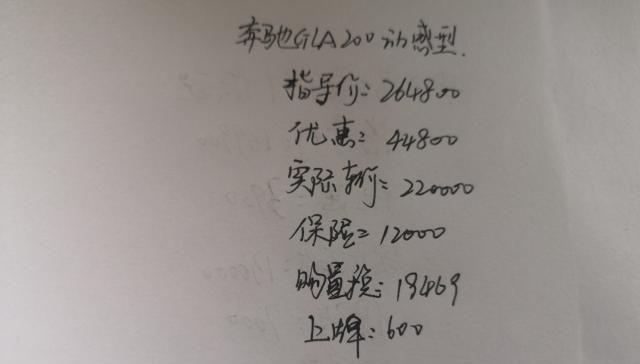 奔驰GLA200动感型.
指导价:264800
优惠:44800
实际车价:220000
保险:12000
购置税:19469
上牌:600